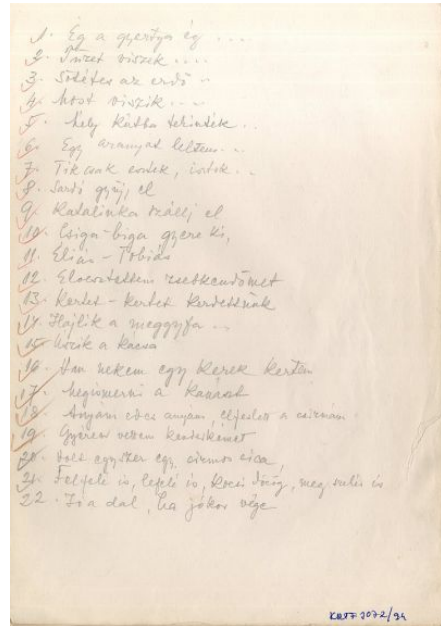 1. Ég a gyertya ég ....
2. Tüzet viszek ....
3. Sötétes az erdő ..
4. Most viszik ....
5. Mély kútba tekinték ..
6. Egy aranyat leltem ..
7. Ti csak esztek, isztok ..
8. Sárdó gyűjj el
9. Katalinka szállj el
10. Csiga-biga gyere ki,
11. Éliás - Tóbiás
12. Elvesztettem zsebkendőmet
13. Kertet - kertet kerteltünk
14. Hajlik a meggyfa ..
15. Úszik a kácsa
16. Van nekem egy kerek kertem
17. Megismerni a kanászt
18. Anyám édes anyám elfeslett a csizmám
19. Györén vettem kendőkémet
20. Volt egyszer egy cirmos cica
21. Felfelé is, lefelé is, kocsi döcög, meg
22. Jó a dal, ha jókor vége
KUTF 1072/94